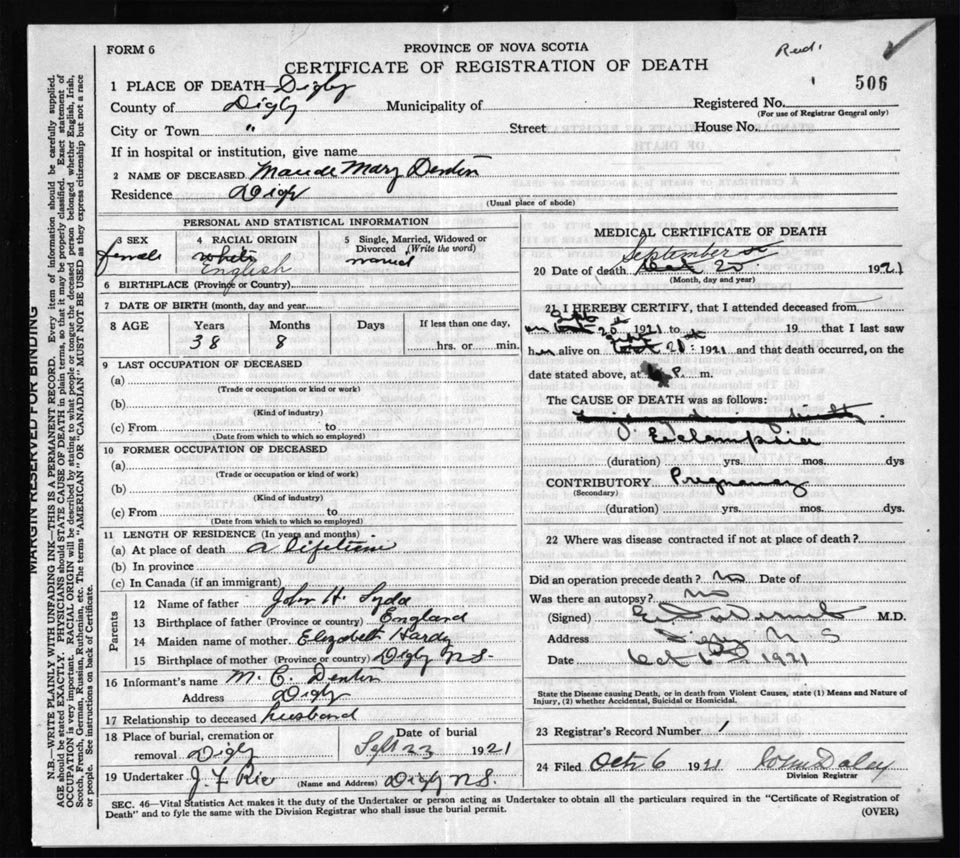 Recd.
FORM 6
PROVINCE OF NOVA SCOTIA
CERTIFICATE OF REGISTRATION OF DEATH
506
1 PLACE OF DEATH—Digby
County of Digby Municipality of Registered No.
(For use of Registrar General only)
City or Town " Street House No.
If in hospital or institution, give name
2 NAME OF DECEASED Maude Mary Denton
Residence Digby
(Usual place of abode)
PERSONAL AND STATISTICAL INFORMATION
3 SEX
female
4 RACIAL ORIGIN
white
English
5 Single, Married, Widowed or Divorced (Write the word)
married
6 BIRTHPLACE (Province or Country)
7 DATE OF BIRTH (month, day and year)
8 AGE Years Months Days If less than one day,
38 8 hrs. or min.
9 LAST OCCUPATION OF DECEASED
(a)
(Trade or occupation or kind or work)
(b)
(Kind of industry)
(c) From to
(Date from which to which so employed)
10 FORMER OCCUPATION OF DECEASED
(a)
(Trade or occupation or kind of work)
(b)
(Kind of industry)
(c) From to
(Date from which to which so employed)
11 LENGTH OF RESIDENCE (In years and months)
(a) At place of death a lifetime
(b) In province
(c) In Canada (if an immigrant)
Parents
12 Name of father John H.
13 Birthplace of father (Province or country) England
14 Maiden name of mother Elizabeth Hardy
15 Birthplace of mother (Province or country) Digby NS.
16 Informant's name M. E. Denton
Address Digby
17 Relationship to deceased husband
18 Place of burial, cremation or removal Digby
Date of burial
Sept 23 1921
19 Undertaker J. F. Rice (Name and Address) Digby NS.
MEDICAL CERTIFICATE OF DEATH
September
20 Date of death 20 1921
(Month, day and year)
21 I HEREBY CERTIFY, that I attended deceased from
on Sept 20th 1921 to 19 that I last saw
her alive on Sept 20th 1921 and that death occurred, on the
date stated above, at P. m.
The CAUSE OF DEATH was as follows:
Eclampsia
(duration) yrs. mos. dys
CONTRIBUTORY Pregnancy
(Secondary)
(duration) yrs. mos. dys.
22 Where was disease contracted if not at place of death?
Did an operation precede death? no Date of
Was there an autopsy? no
(Signed) M.D.
Address Digby N S
Date Oct 6th 1921
State the Disease causing Death, or in death from Violent Causes, state (1) Means and Nature of
Injury, (2) whether Accidental, Suicidal or Homicidal.
23 Registrar's Record Number 1
24 Filed Oct 6 1921 John Daley
Division Registrar
SEC. 46—Vital Statistics Act makes it the duty of the Undertaker or person acting as Undertaker to obtain all the particulars required in the "Certificate of Registration of
Death" and to fyle the same with the Division Registrar who shall issue the burial permit. (OVER)
MARGIN RESERVED FOR BINDING
N.B.—WRITE PLAINLY WITH UNFADING INK—THIS IS A PERMANENT RECORD. Every item of information should be carefully supplied.
AGE should be stated EXACTLY. PHYSICIANS should STATE CAUSE OF DEATH in plain terms, so that it may be properly classified. Exact statement of
OCCUPATION is very important. RACIAL ORIGIN will be described by stating to what people or tongue the deceased person belonged whether English, Irish,
Scotch, French, German, Russian, Ruthenian, etc. The terms "AMERICAN" OR "CANADIAN" MUST NOT BE USED as they express citizenship but not a race
or people. See instructions on back of Certificate.